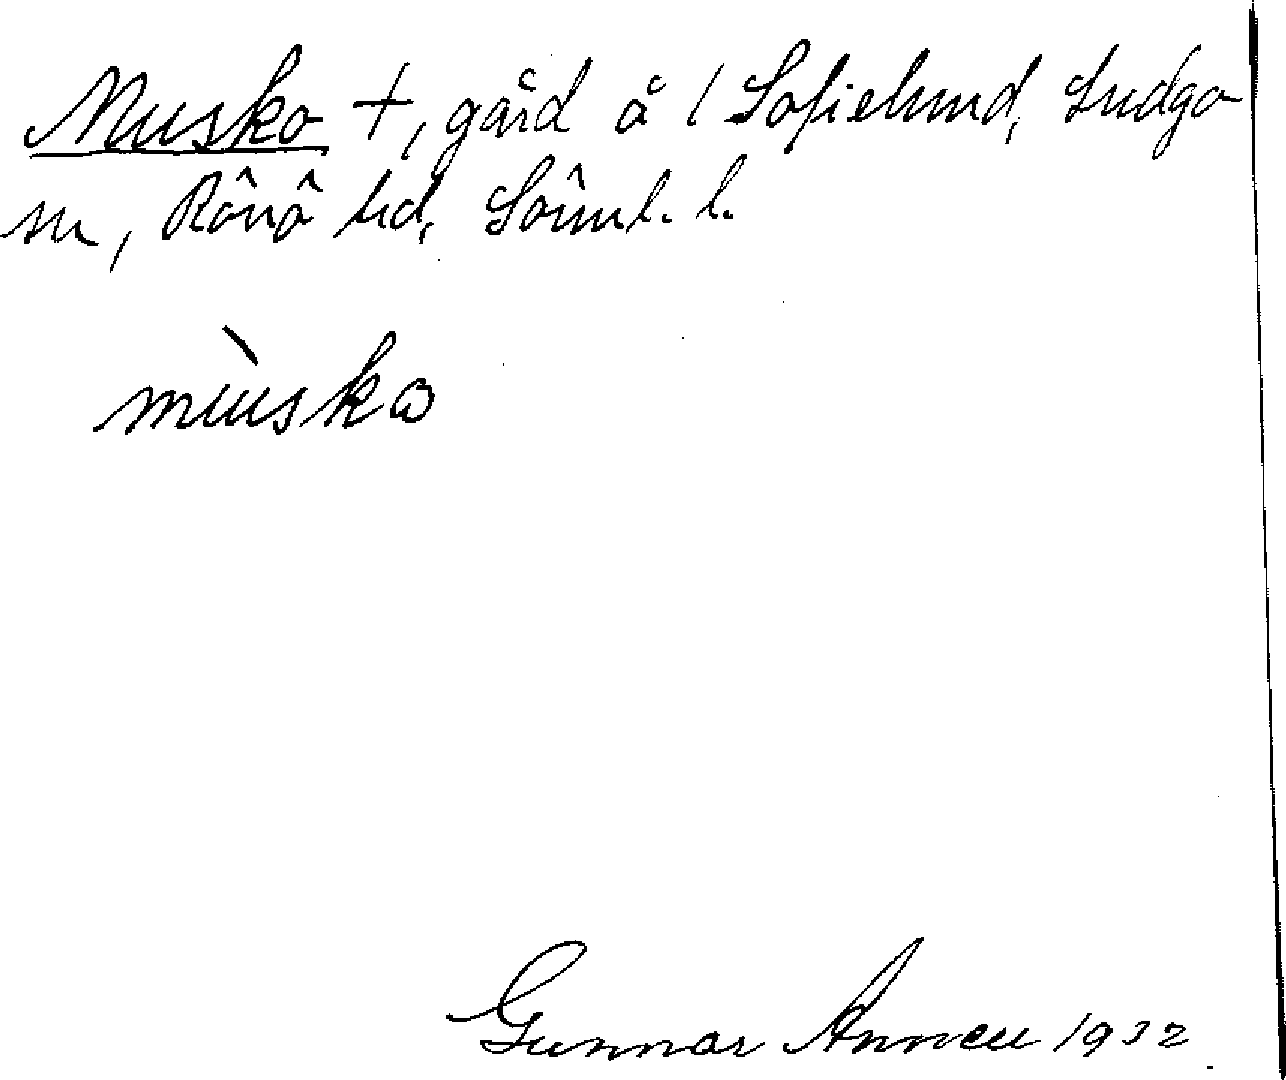 Musko +, gård å 1 Sofielund, Ludgo
sn, Rönö hd, Söml. l.
mùsko
Gunnar 1932